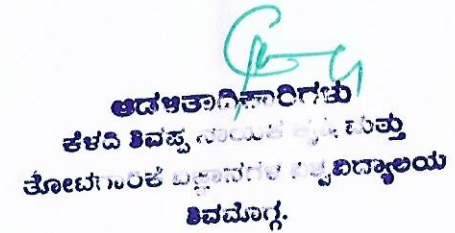 ಆಡಳಿತಾಧಿಕಾರಿಗಳು
ಕೆಳದಿ ಶಿವಪ್ಪ ನಾಯಕ ಕೃಷಿ ಮತ್ತು
ತೋಟಗಾರಿಕೆ ವಿಜ್ಞಾನಗಳ ವಿಶ್ವವಿದ್ಯಾಲಯ
ಶಿವಮೊಗ್ಗ.